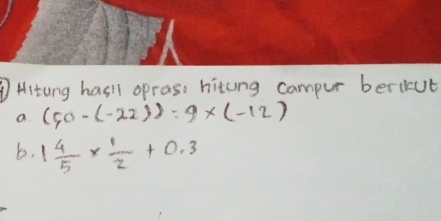 Hitung hasil oprasi hitung campur berikut
a. (50 - (-22)) : 9 × (-12)
b. 1 4/5 × 1/2 + 0.3